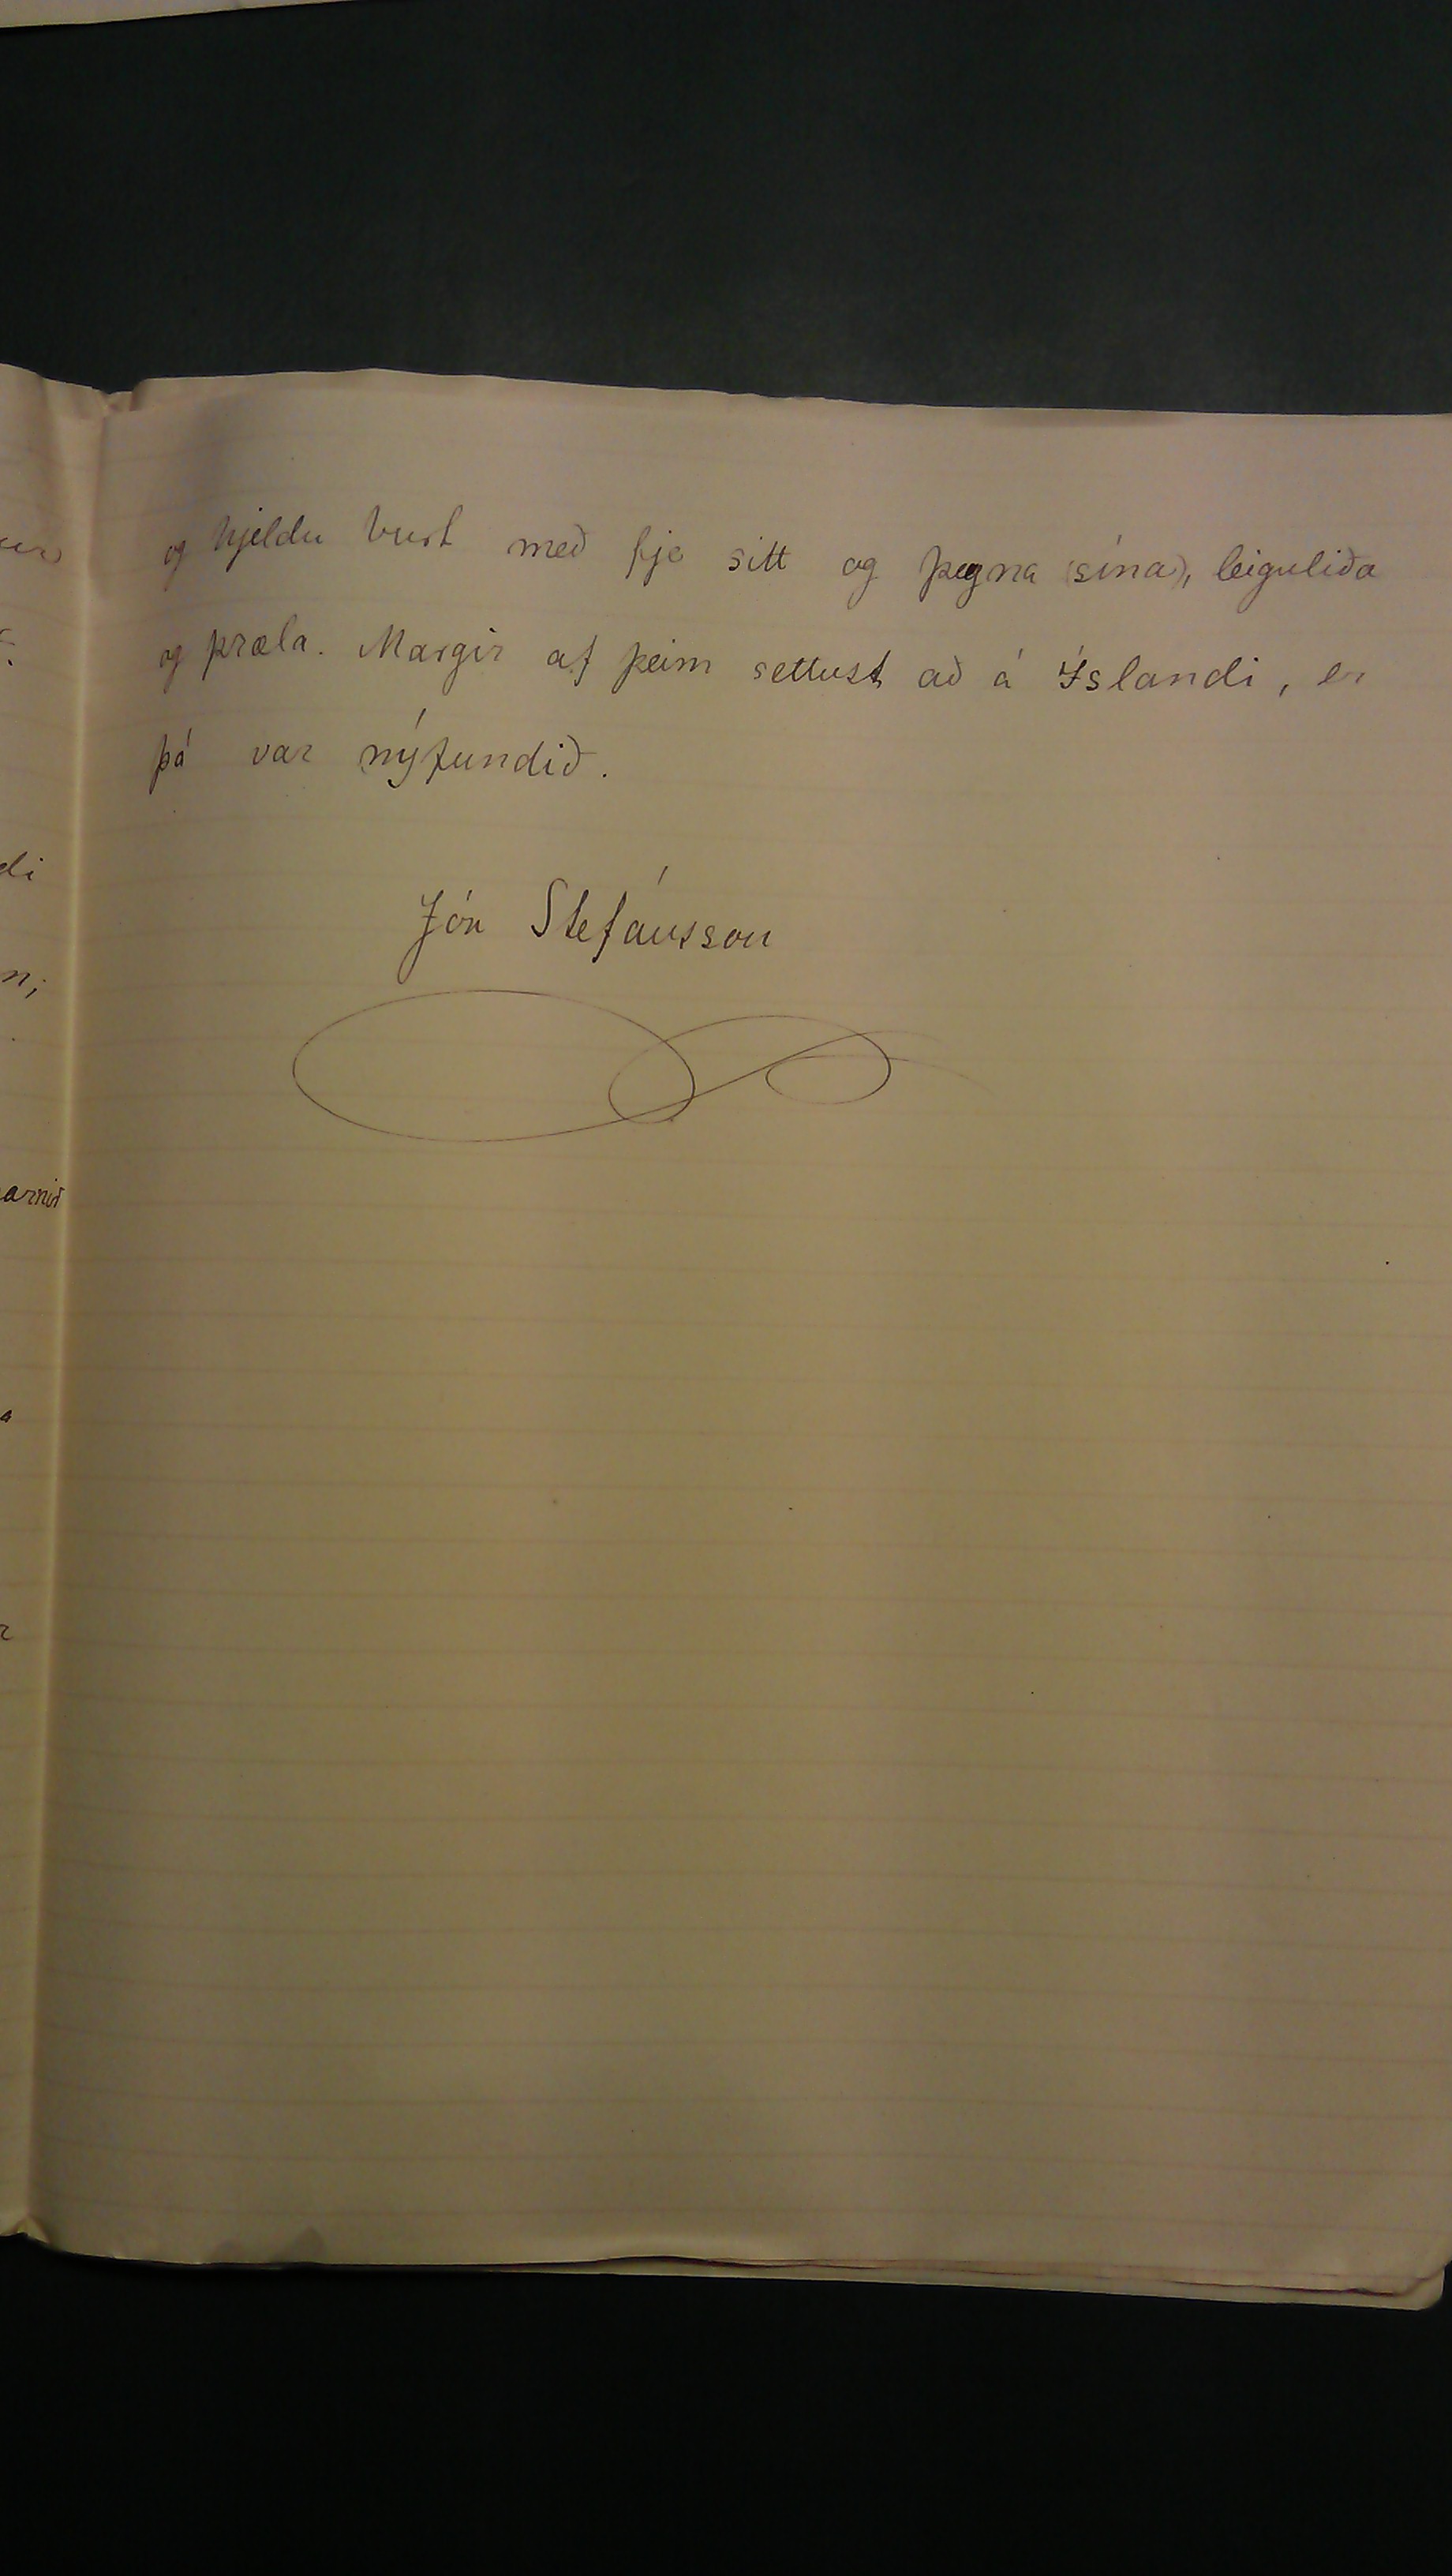 og hjeldu burt með fje sitt og þegna (sína), leiguliða
og þræla. Margir af þeim settust að á Íslandi, er
þá var nýfundið.
Jón Stefánsson
di
n;